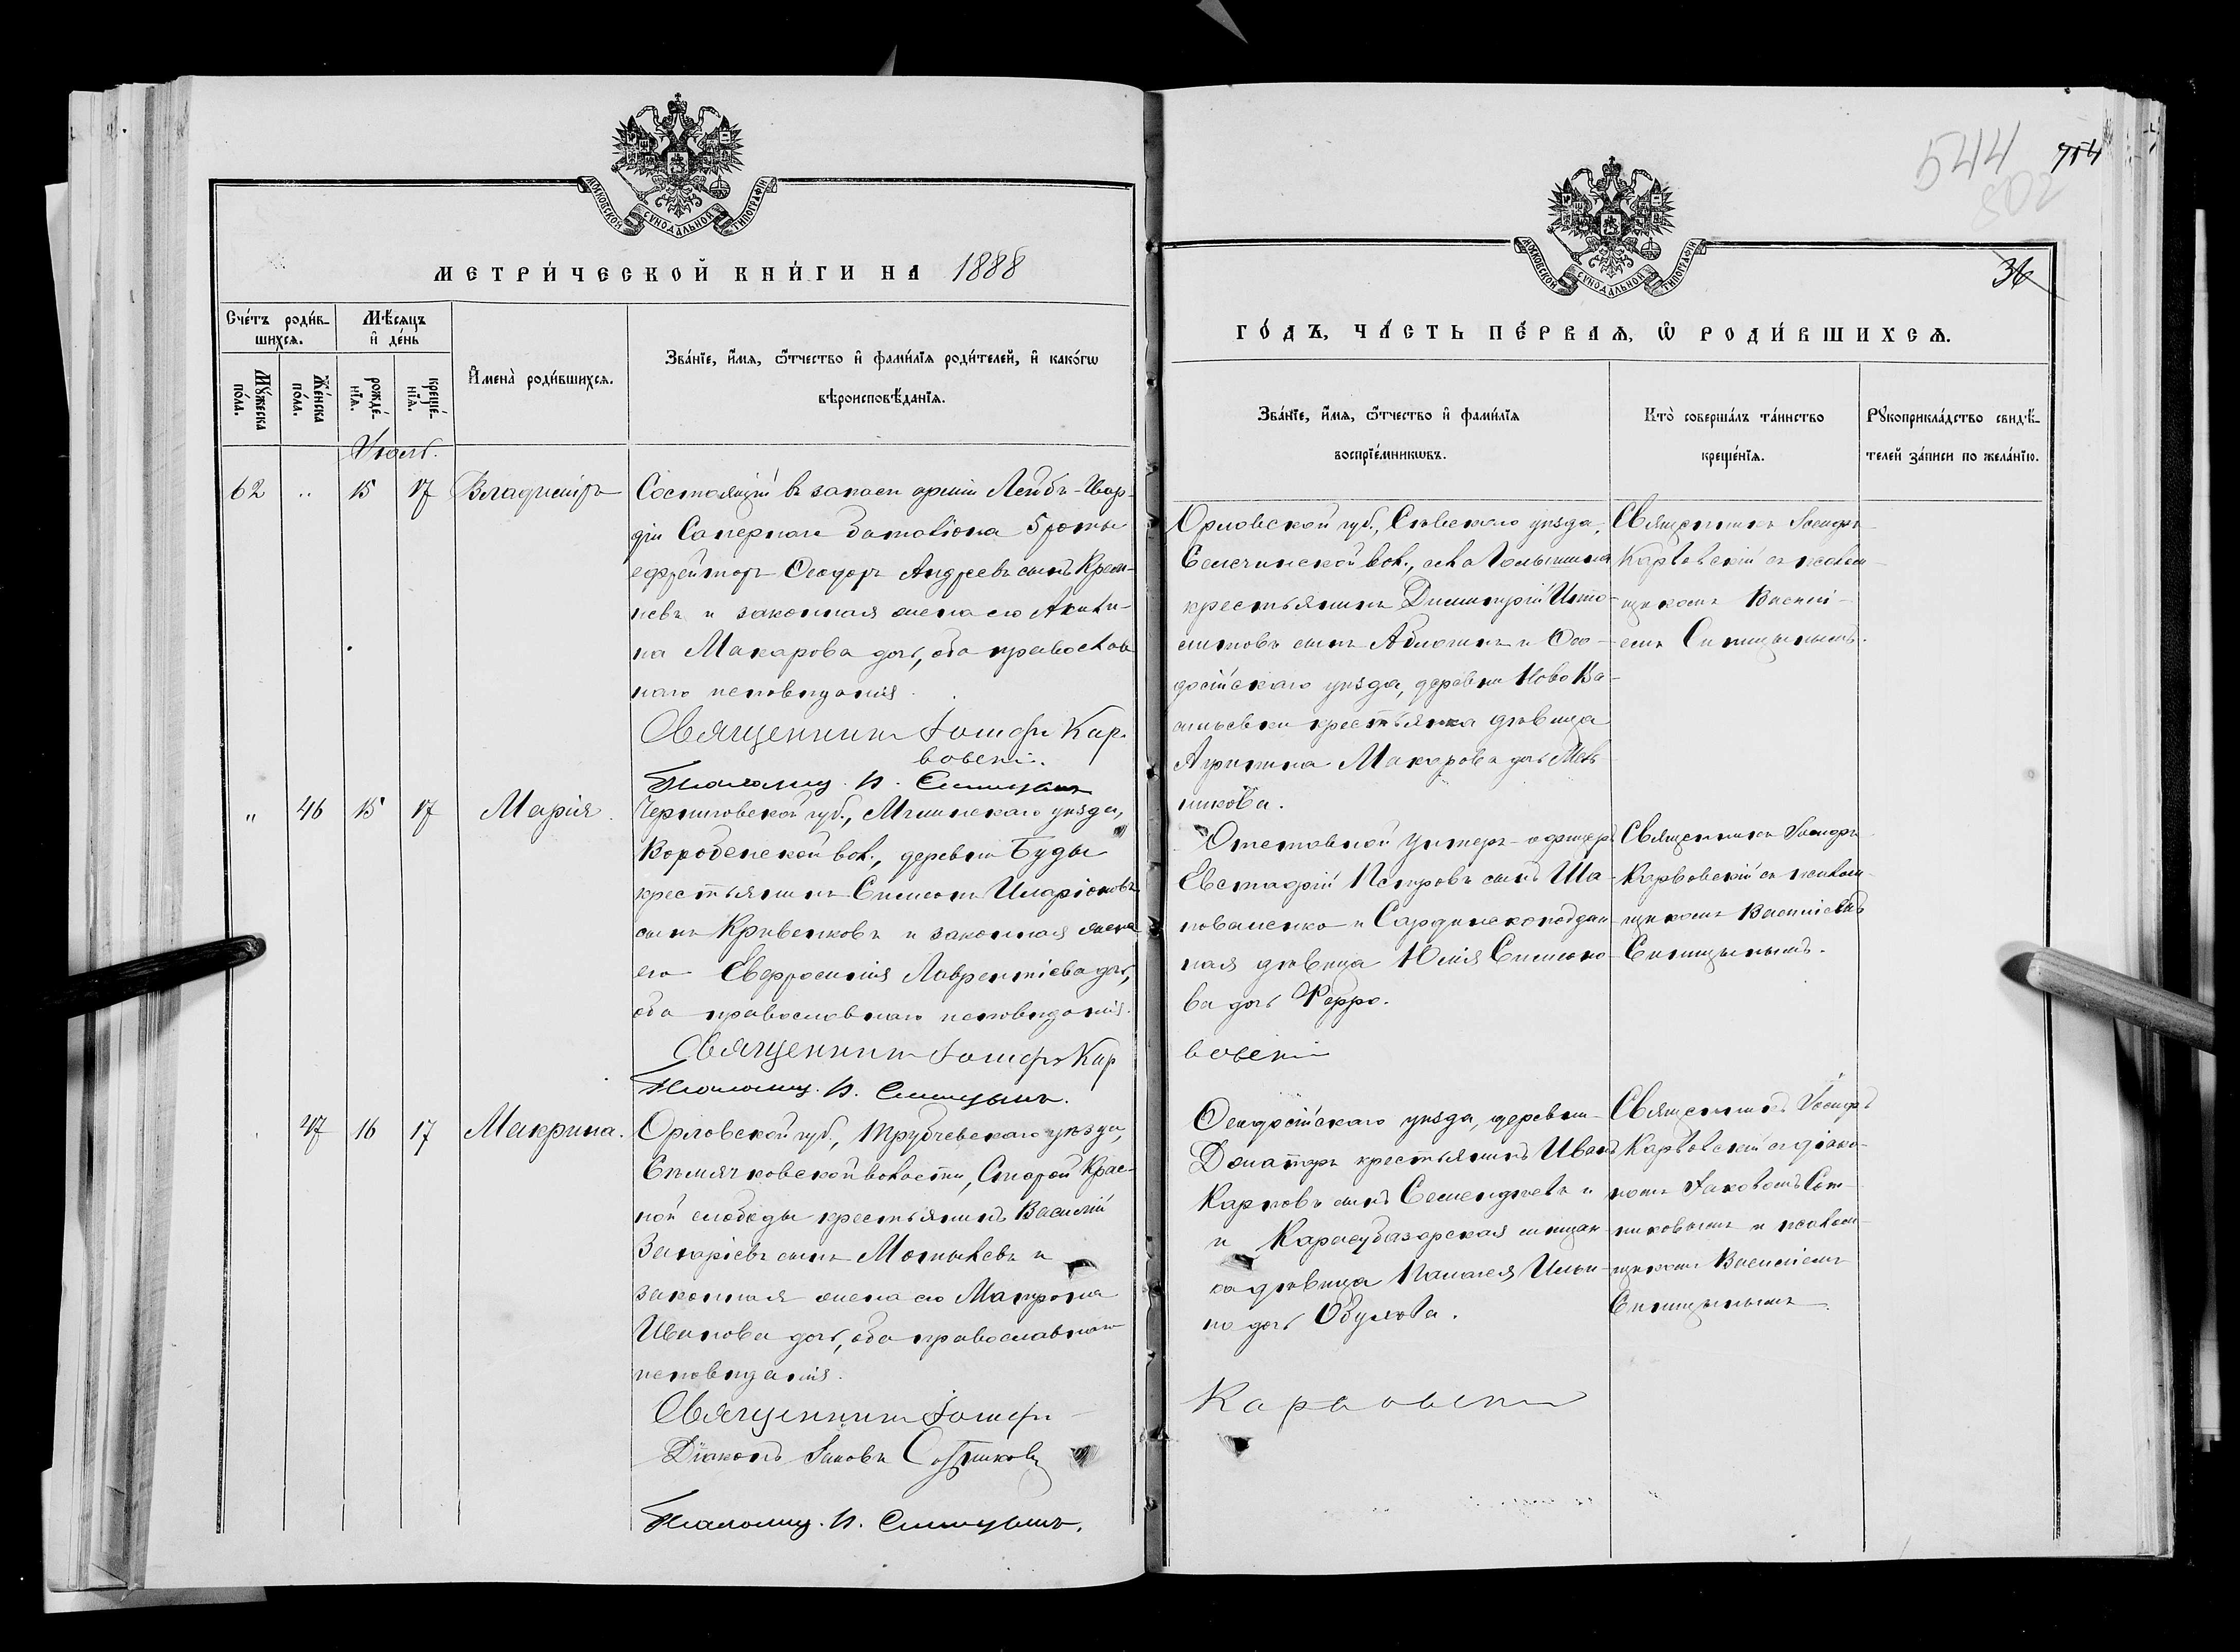 МОСКОВСКОЙ СѴНОДАЛЬНОЙ ТИПОГРАФІИ
МЕТРИ́ЧЕСКОЙ КНИ́ГИ НА 1888
Сче́тъ роди́в-
шихсѧ.
Мѣ́сѧцъ
и҆ де́нь
Мꙋ́жеска
по́ла.
Же́нска
по́ла.
рожде́-
нїѧ.
креще́-
нїѧ.
И҆мена̀ роди́вшихсѧ.
Зва́нїе, и҆́мѧ, ѻ҆́тчество и҆ фами́лїѧ роди́телей, и҆ како́гѡ
вѣроисповѣ́данїѧ.
Іюль.
62 „ 15 17 Владиміръ
Состоящій въ запасѣ арміи Лейбъ-Гвар-
діи Сапернаго баталіона 5 роты
ефрейторъ Ѳеодоръ Андреевъ сынъ Крем-
невъ и законная жена его Акили-
на Макарова дочь, оба православ
наго исповѣданія.
Священникъ Іосифъ Кар-
вовскій.
Псаломщ. В. Синицынъ
„ 46 15 17 Марія.
Черниговской губ., Мглинскаго уѣзда,
Воробенской вол., деревни Буды
крестьянинъ Симеонъ Иларіоновъ
сынъ Кривенковъ и законная жена
его Евфросинія Лаврентіева дочь,
оба православнаго исповѣданія.
Священникъ Іосифъ Кар
Псаломщ. В. Синицынъ.
47 16 17 Макрина.
Орловской губ., Трубчевскаго уѣзда,
Семячковской волости, Старой Крас-
ной слободы крестьянинъ Василій
Захаріевъ сынъ Мотылевъ и
законная жена его Матрона
Иванова дочь, оба православнаго
исповѣданія.
Священникъ Іосифъ
Діаконъ Іаковъ Сотниковъ
Псаломщ. В. Синицынъ.
544 714
502
36
МОСКОВСКОЙ СѴНОДАЛЬНОЙ ТИПОГРАФІИ
ГО́ДЪ, ЧА́СТЬ ПЕ́РВАѦ, Ѡ҆ РОДИ́ВШИХСѦ.
Зва́нїе, и҆́мѧ, ѻ҆́тчество и҆ фами́лїѧ
воспрїе́мникѡвъ.
Кто̀ соверша́лъ та́инство
креще́нїѧ.
Рꙋкоприкла́дство свидѣ́-
телей за́писи по жела́нїю.
Орловской губ., Сѣвскаго уѣзда,
Семечинской вол., села
крестьянинъ Димитрій Ипо-
литовъ сынъ Аблогинъ и Ѳео-
досійскаго уѣзда, деревни Ново Ва-
сильевки крестьянка дѣвица
Агрипина Макарова дочь Мель
никова.
Священникъ Іосифъ
Карвовскій съ псалом-
щикомъ Василі-
емъ Синицынымъ.
Отставной унтеръ-офицеръ
Евстафій Петровъ сынъ Ша-
поваленко и Сардинскоподдан
ная дѣвица Юлія Симеоно-
ва дочь Ферро.
вовскій
Священникъ Іосифъ
Карвовскій съ псалом-
щикомъ Василіемъ
Синицынымъ.
Ѳеодосійскаго уѣзда, деревни
крестьянинъ Иванъ
Карповъ сынъ Семенджевъ и
и Карасубазарская мѣщан-
ка дѣвица Палагея Ильи-
на дочь Обухова.
Священникъ Іосифъ
Карвовскій съ діако-
номъ Іаковомъ Сот-
никовымъ и псалом-
щикомъ Василіемъ
Синицынымъ.
Карвовскій